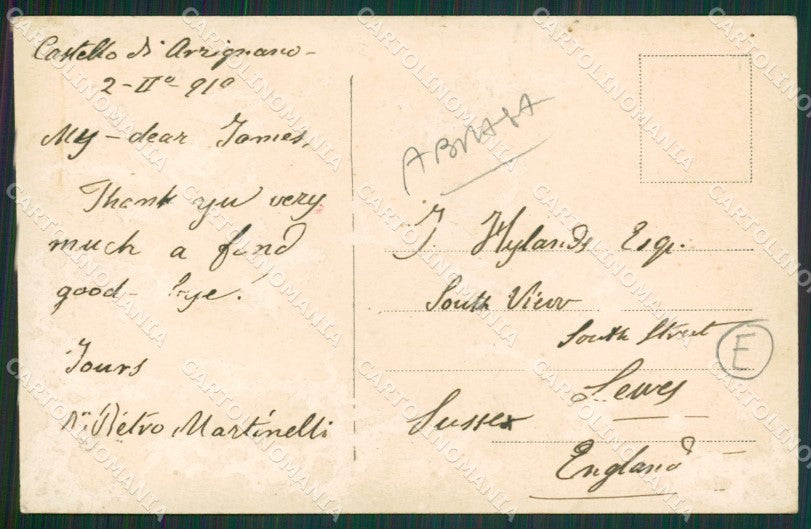 Castello di Arzignano -
2 - IIº 910
My - dear James,
Thank you very
much a fond
good - bye.
Yours
Pietro Martinelli
ABRASA
J. Hylands Esqr.
South View
South Street
Lewes
Sussex
England
E
CARTOLINOMANIA